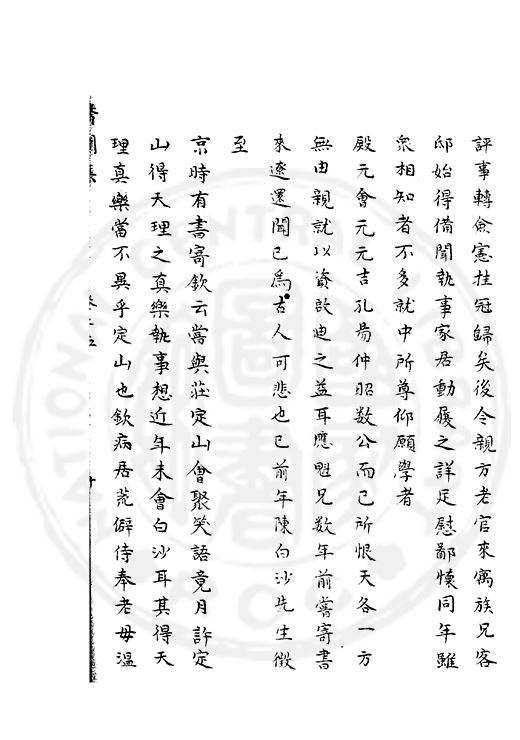 評事轉僉憲挂冠歸矣後令親方老官來寓族兄客
邸始得備聞執事家居動履之詳足慰鄙懷同年雖
衆相知者不多就中所尊仰願學者
殿元會元元吉孔昜仲昭数公而已所恨天各一方
無由親就以資啟迪之益耳應魁兄数年前嘗寄書
來遼還聞已爲古人可悲也已前年陳白沙先生徴
至
京時有書寄欽云嘗與莊定山會聚笑語竟月許定
山得天理之真樂執事想近年未會白沙耳其得天
理真樂當不異乎定山也欽病居荒僻侍奉老母溫
醫閭集